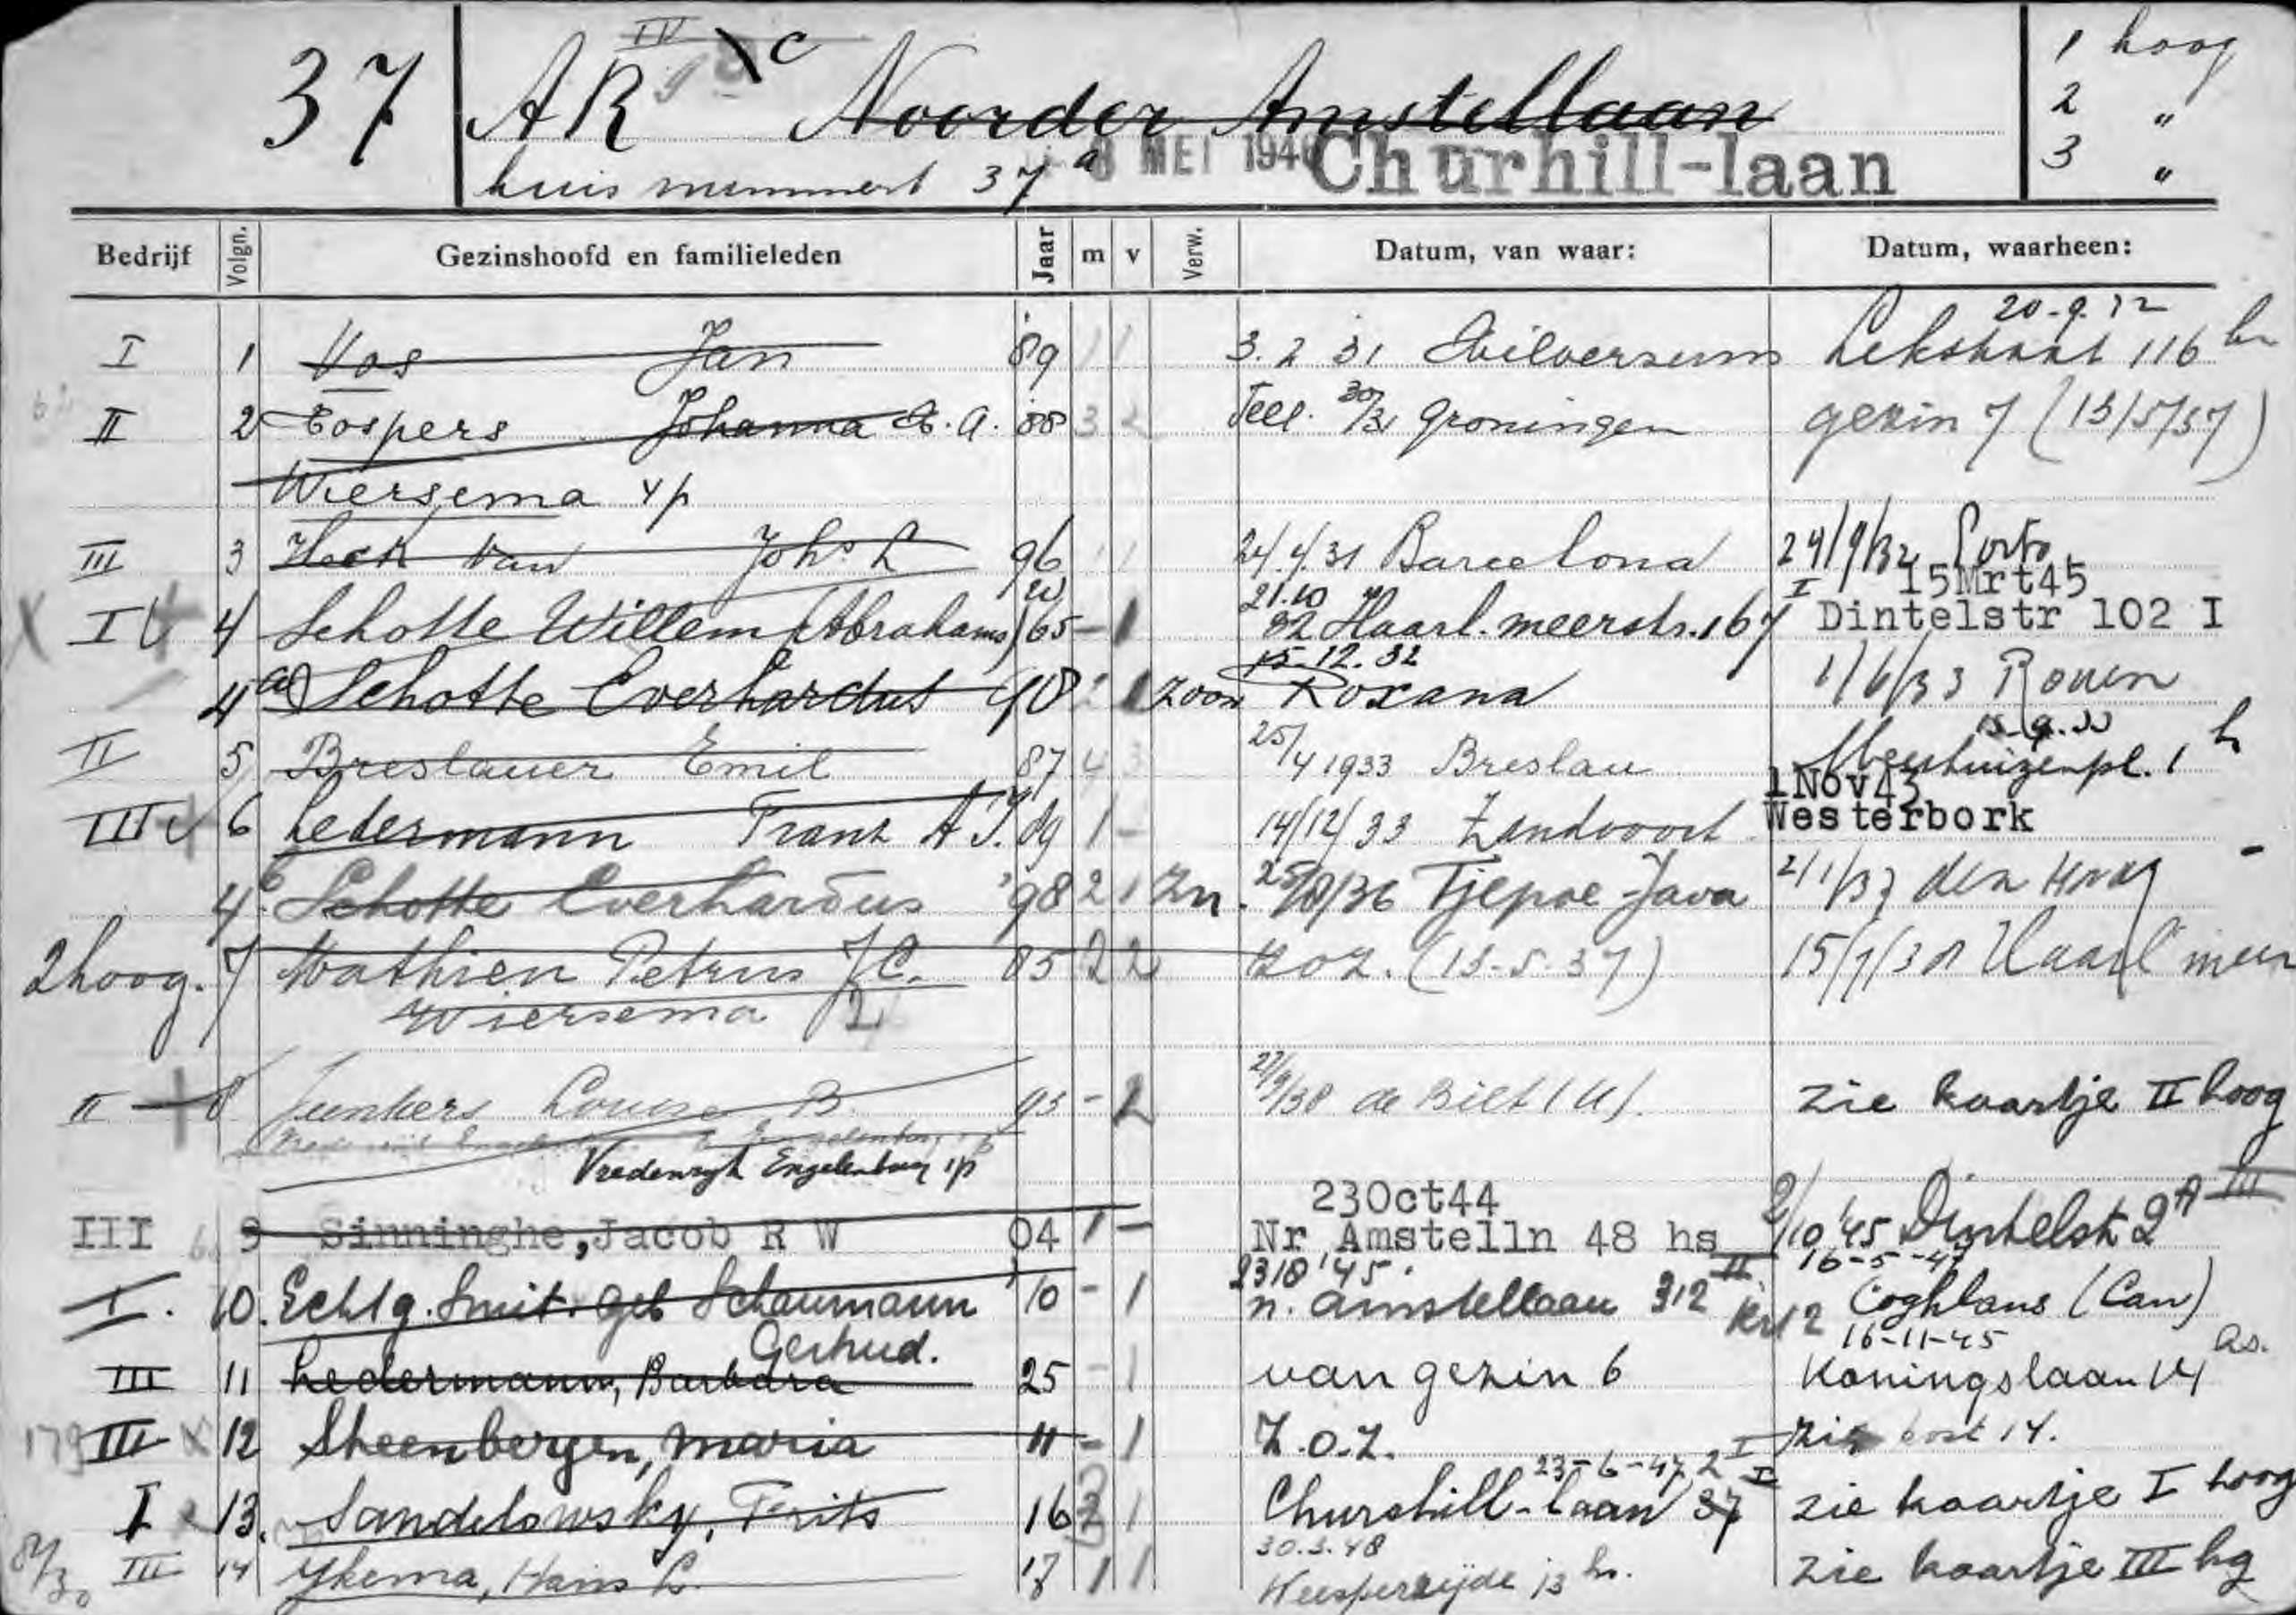 37 AR IV c Noorder Amstellaan 1 hoog
2 "
huis nummert 37 a 8 MEI 1946 Churhill-laan 3 "
Bedrijf Volgn. Gezinshoofd en familieleden Jaar m v Verw. Datum, van waar: Datum, waarheen:
20-9-32
I 1 Vos Jan 89 1 1 3.2 31 Hilversum Lekstraat 116 hs
II 2 Eospers Johanna A. '88 3 2 Tell. 30/31 Groningen gezin 7 (13/5/37)
Wiersema 4p
III 3 Heck van Johs L 96 1 1 24/4/31 Barcelona 24/9/32 Porto
21.10 I 15Mrt45
IV 4 Schotte Willem (Abrahams) 65 - 1 32 Haarl.meerstr. 167 Dintelstr 102 I
15-12.32
4a Schotte Everhardus 98 2 1 zoon Roxana 1/6/33 Rouen
II 5 Breslauer Emil 87 4 3 25/4 1933 Breslau Meerhuizenpl. 1 h
1Nov43
III 6 Ledermann Franz A J. 89 1 - 14/12/33 Zandvoort Westerbork
4b Schotte Everhardus '98 2 1 Zn. Tjepoe-Java 2/1/37 den Haag
2 hoog. 7 Mathien Petrus J C. 85 2 2 z o z. (13-5-37) Haarl meer
Wiersema
II 8 Junkers Louise B. 93 - 2 27/9/38 de Bilt (U). zie kaartje II hoog
Vredenryk Engelenburg 1p
23Oct44
III 9 Sinninghe, Jacob R W 04 1 - Nr Amstelln 48 hs 2/10 '45 Dintelstr 2A III
23 10 '45. 16-5-47
I. 10. Echtg. Smit. geb Schaumann '10 - 1 n. amstellaan 312 II Coghlans (Can)
Gertrud. 16-11-45
III 11 Ledermann, Barbara 25 - 1 van gezin 6 Koningslaan 14 hs.
179 III 12 Steenbergen, Maria 11 - 1 Z.O.Z. zie kaart 14.
23-6-47
I 13. Sandelowsky, Frits 16 2 1 Churchill-laan 37 I zie kaartje I hoog
30.3.48
III 14 Ykema, Hans L. 17 1 1 Weesperzijde 13 hs. zie kaartje III hg